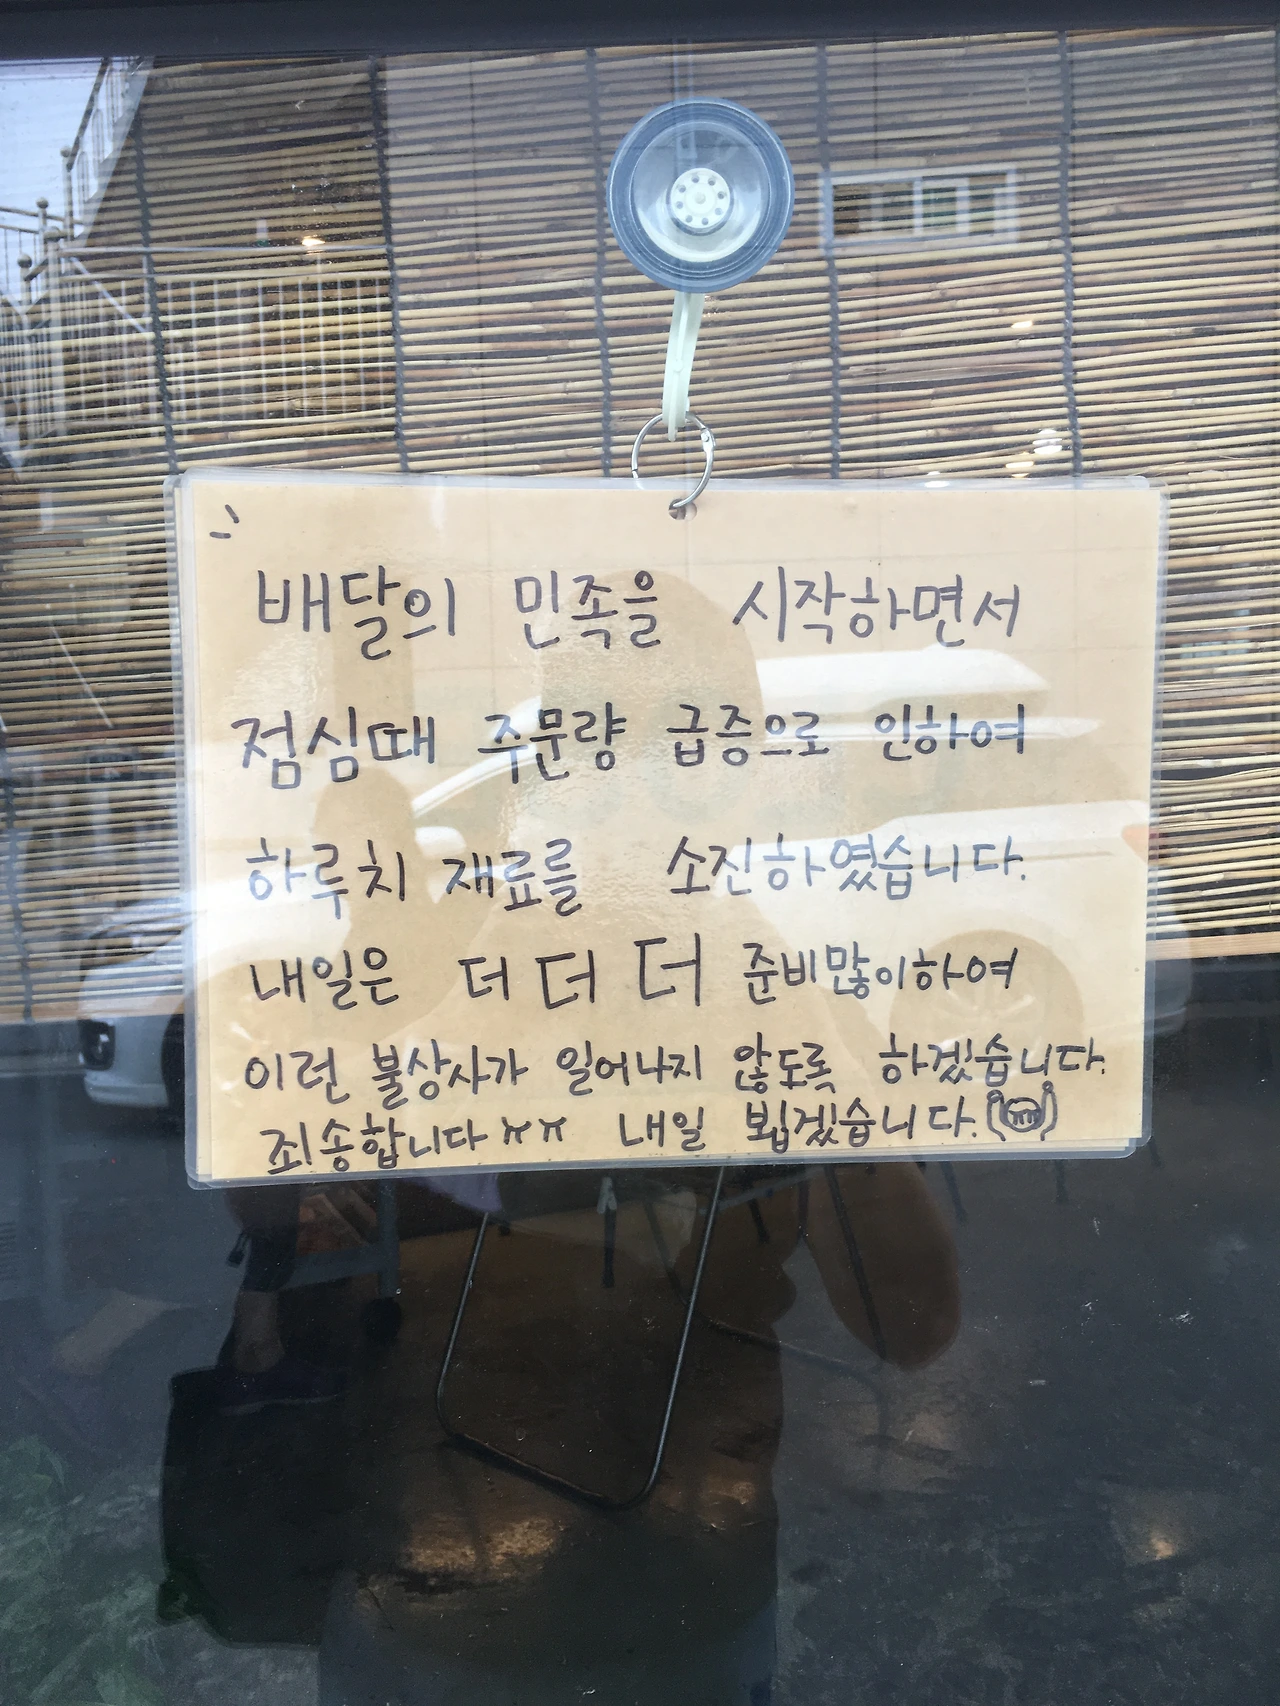 배달의 민족을 시작하면서
점심때 주문량 급증으로 인하여
하루치 재료를 소진하였습니다.
내일은 더 더 더 준비많이하여
이런 불상사가 일어나지 않도록 하겠습니다.
죄송합니다 ㅠㅠ 내일 뵙겠습니다.